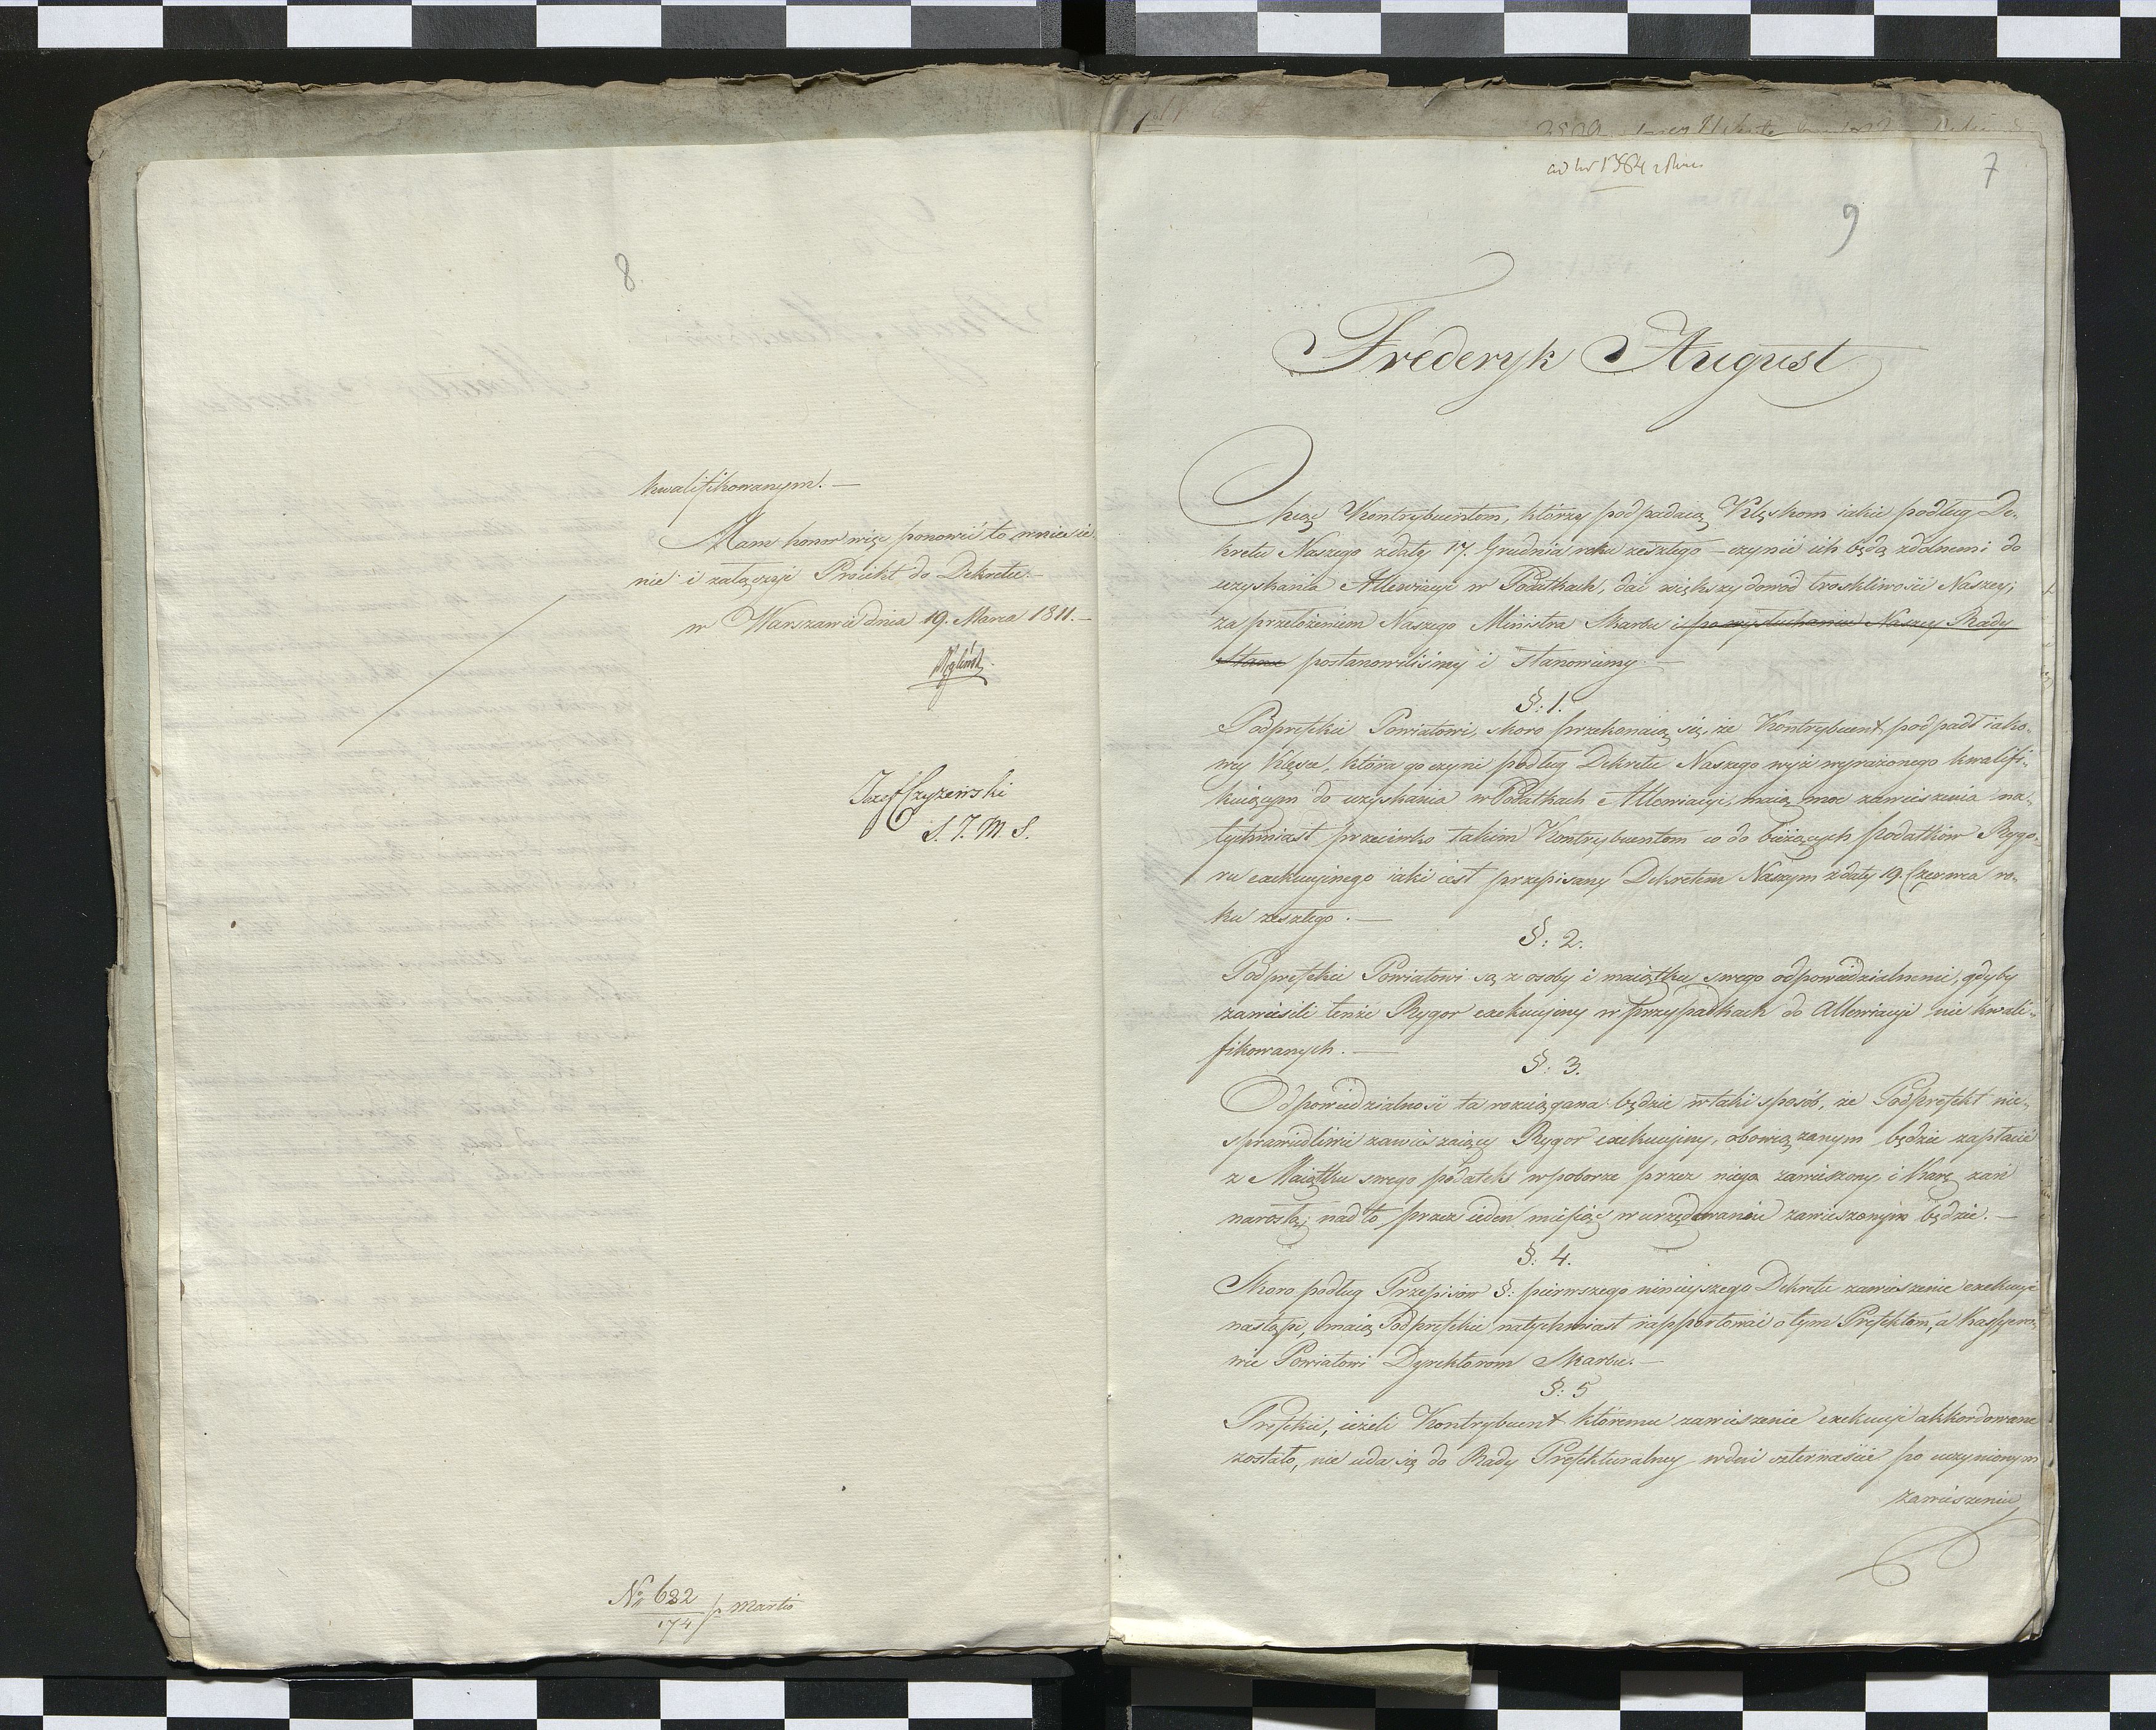 8
kwalifikowanym. —
Mam honor więc ponowić to wniesie-
nie i załączyć Proiekt do Dekretu. —
w Warszawie dnia 19. Marca 1811. —
Józef Czyżewski
S. J. M. S.
No 632
174 p Martio
ad No 1384
7
9
Frederyk August
Chcąc Kontrybuentom, którzy podpadaią Klęskom iakie podług De-
kretu Naszego z daty 17. Grudnia roku zeszłego – czynić ich będą zdolnemi do
uzyskania Allewiacyi w Podatkach, dać większy dowod troskliwości Naszey;
za przełożeniem Naszego Ministra Skarbu i po wysłuchaniu Naszey Rady
Stanu postanowiliśmy i stanowiemy. —
§: 1.
Podprefekci Powiatowi, skoro przekonaią się, że Kontrybuent podpadł iako-
wey Klęsce, która go czyni podług Dekretu Naszego wyż wyrażonego kwalifi-
kuiącym do uzyskania w Podatkach Allewiacyi, maią moc zawieszenia na-
tychmiast przeciwko takim Kontrybuentom co do bieżących podatków Rygo-
ru exekucyinego iaki iest przepisany Dekretem Naszym z daty 19. Czerwca ro-
ku zeszłego. —
§: 2.
Podprefekci Powiatowi są z osoby i maiątku swego odpowiedzialnemi, gdyby
zawiesili tenże Rygor exekucyiny w przypadkach do Allewiacyi nie kwali-
fikowanych. —
§: 3.
Odpowiedzialność ta rozciągana będzie w taki sposób, że Podprefekt nie-
sprawiedliwie zawieszaiący Rygor exekucyiny, obowiązanym będzie zapłacić
z Maiątku swego podatek w poborze przez niego zawieszony, i karę zań
narosłą; nad to przez ieden miesiąc w urzędowaniu zawieszonym będzie. —
§: 4.
Skoro podług Przepisów §: pierwszego ninieyszego Dekretu zawieszenie exekucyi
nastąpi, maią Podprefekci natychmiast rapportować o tym Prefektom, a Kassyero-
wie Powiatowi Dyrektorom Skarbu. —
§: 5
Prefekci, ieżeli Kontrybuent któremu zawieszenie exekucyi akkordowane
zostało, nie uda się do Rady Prefekturalney w dni czternaście po uczynionym
zawieszeniu